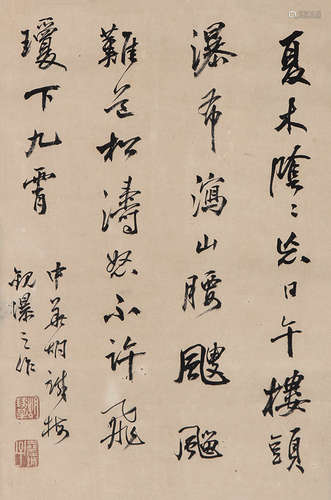 夏木陰〻忘日午樓頭
瀑布瀉山腰颼
難松濤怒不許飛
瓊下九霄
中華胡鐵梅
觀瀑之作